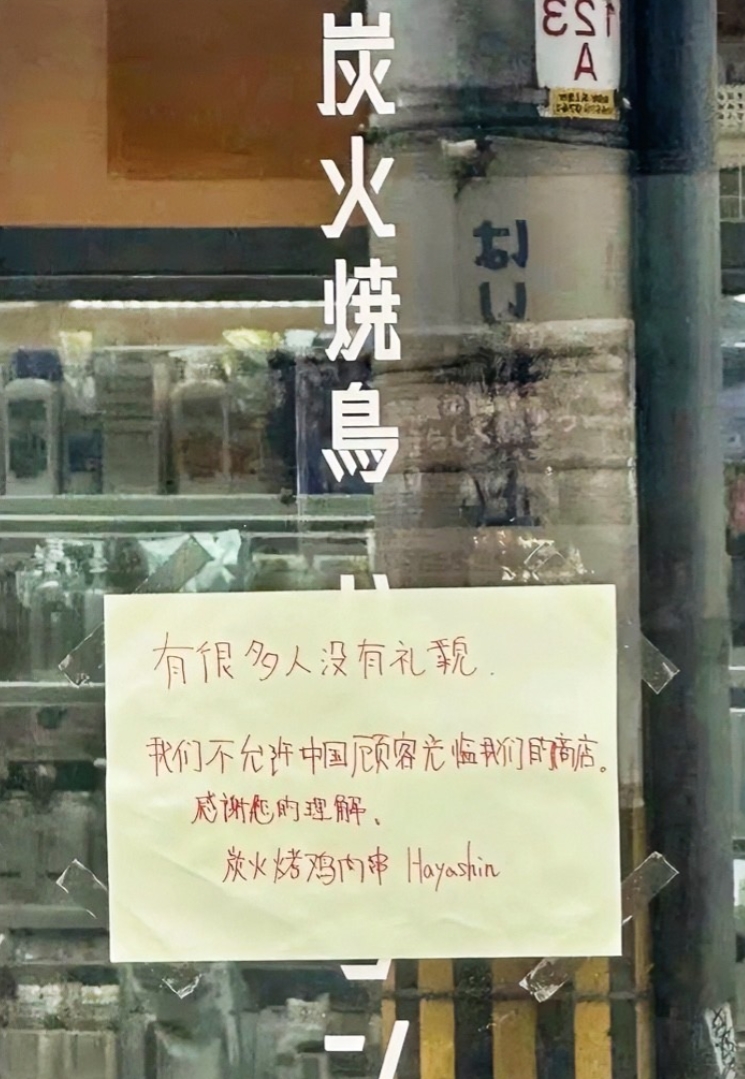 炭火焼鳥
ン
123
A
はり
有很多人没有礼貌.
我们不允许中国顾客光临我们的商店。
感谢您的理解、
炭火烤鸡肉串 Hayashin